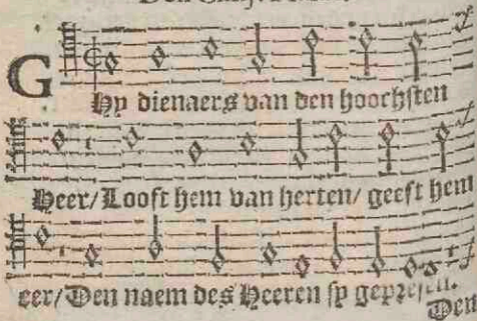 GHy dienaers van den hoochsten
Heer/Looft hem van herten/ geeft hem
eer/Den naem des Heeren sy gepresen.
Den